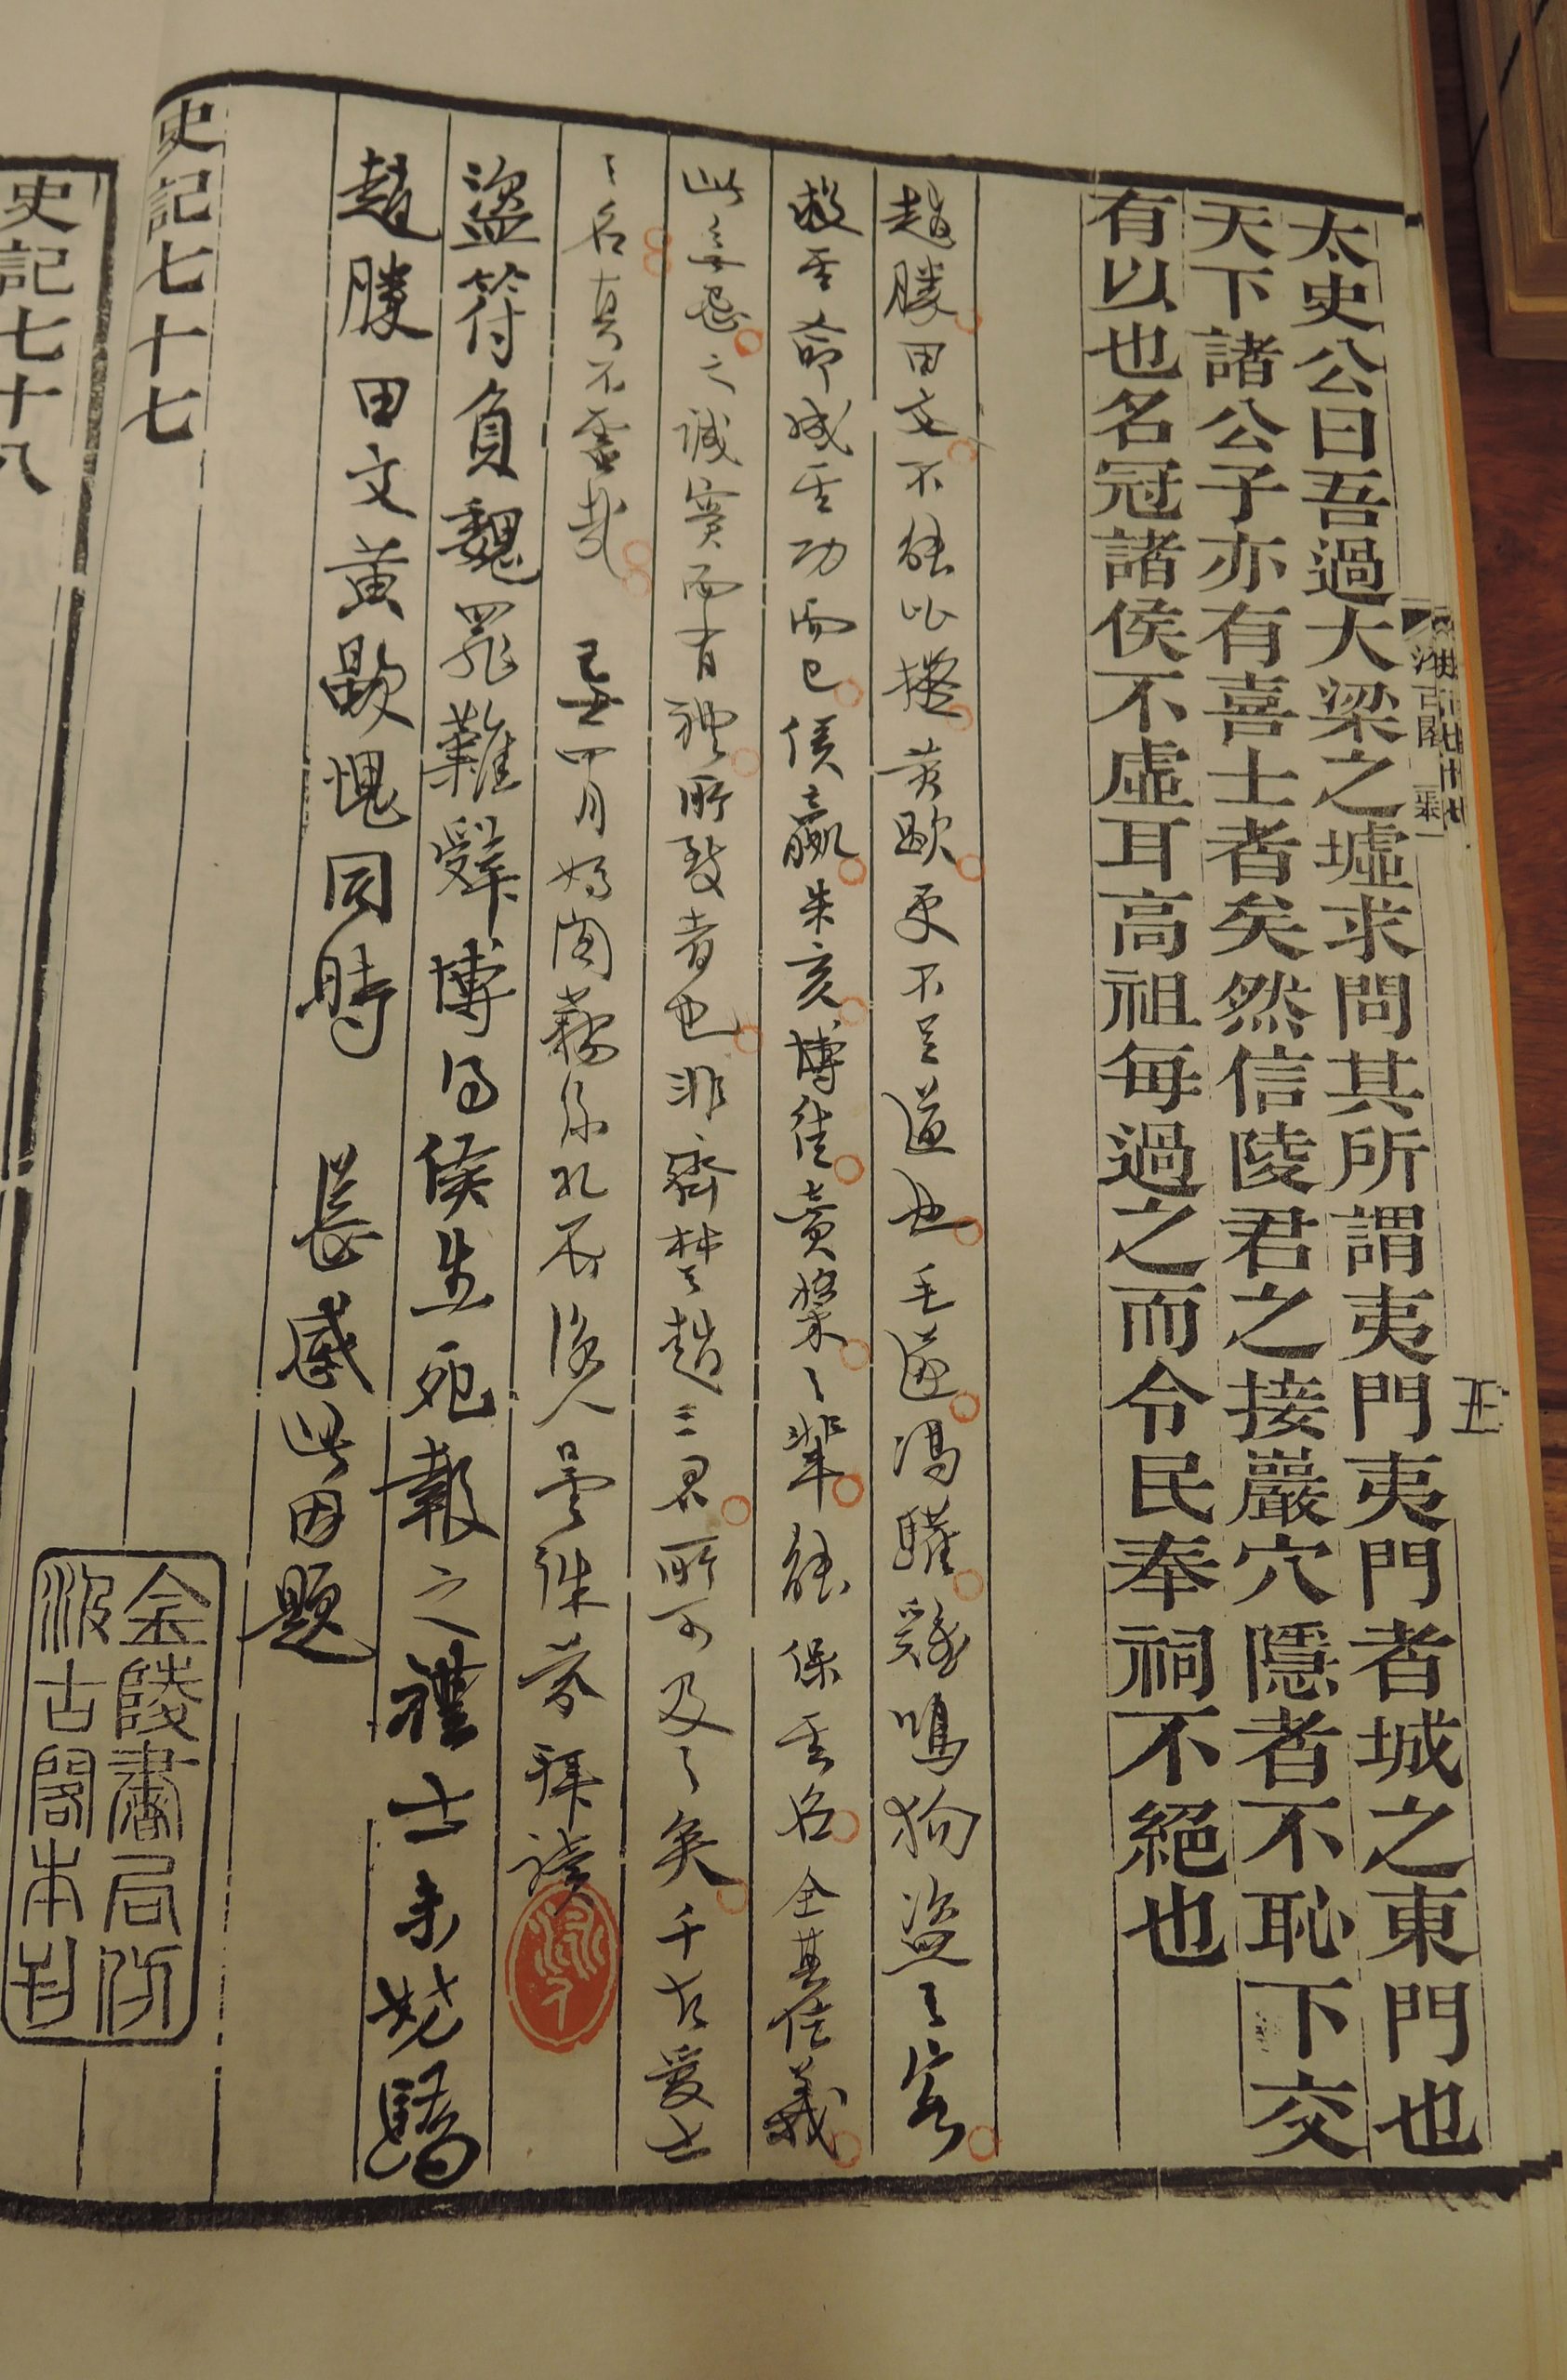 太史公曰吾過大梁之墟求問其所謂夷門夷門者城之東門也
天下諸公子亦有喜士者矣然信陵君之接巖穴隱者不恥下交
有以也名冠諸侯不虛耳高祖每過之而令民奉祠不絕也
趙勝田文不能比擬黃歇更不足道也毛遂馮驩雞鳴狗盜之客
救其命成其功而已侯嬴朱亥博徒賣漿之輩能保其名全其信義
此無忌之誠實而有禮所致者也非齊楚趙三君所可及之矣千古愛士
之名真不虛哉 四月 後人曇 拜讀
盜符負魏罪難辭博得侯生死報之禮士未嘗驕
趙勝田文黃歇愧同時 長感此因題
史記七十七
金陵書局仿
汲古閣本刊
史記七十八
五